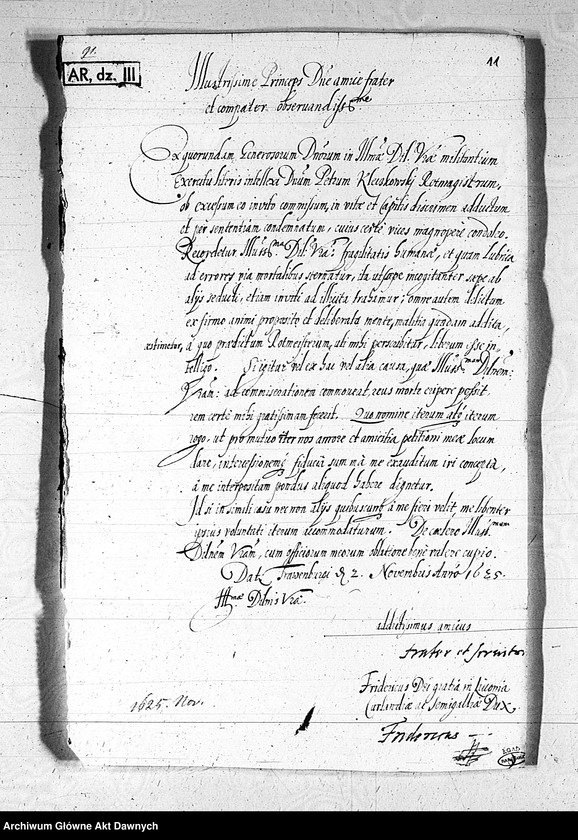 91.
11
AR, dz. III
Illustrissime Princeps Dne amice frater
et compater observandiss.me
Ex quorundam Generosorum Dnorum in Illmae Dil. Vrae militantium
Exercitu literis intellexi Dnum Petrum Kleczkovski Rotmagistrum,
ob excessum eo invito commissum, in vitae et Capitis discrimen adductum
et per sententiam condemnatum, cuius certe vices magnopere condoleo.
Recordetur Illuss.ma Dil. Vra: fragilitatis humanae, et quam lubrica
ad errores via mortalibus sternatur, ita ut saepe incogitanter saepe ab
alijs seducti, etiam inviti ad illicita trahamur; omne autem delictum
ex firmo animi proposito et deliberata mente, malitia quadam addita,
aestimetur, a quo praedictum Rotmeistrum, uti mihi perscribitur, liberum esse in-
telligo. Si igitur vel ex hac vel alia causa, quae Illuss.mam Dilnem:
Vram: ad commiserationem commoveat, reus morte eripere possit
rem certe mihi gratissimam fecerit. Quo nomine iterum atq iterum
rogo, ut pro mutuo inter nos amore et amicitia petitioni meae locum
dare, intercessionemq fiducia summa me exauditum iri concepta,
a me interpositam pondus aliquod habere dignetur.
Id si in simili casu nec non alijs quibuscunq a me fieri velit, me libenter
ipsius voluntati iterum accommodaturum. De caetero Illuss.mam
Dilnem Vram, cum officiorum meorum oblatione bene valere cupio.
Dat: d. 2. Novembris Anno 1625.
Illmae Dilnis Vrae.
addictissimus amicus
frater et servitor
Fridericus Dei gratia in Livonia
Curlandiae ac Semigalliae Dux
Fridericus
1625. Nov.
Archiwum Główne Akt Dawnych